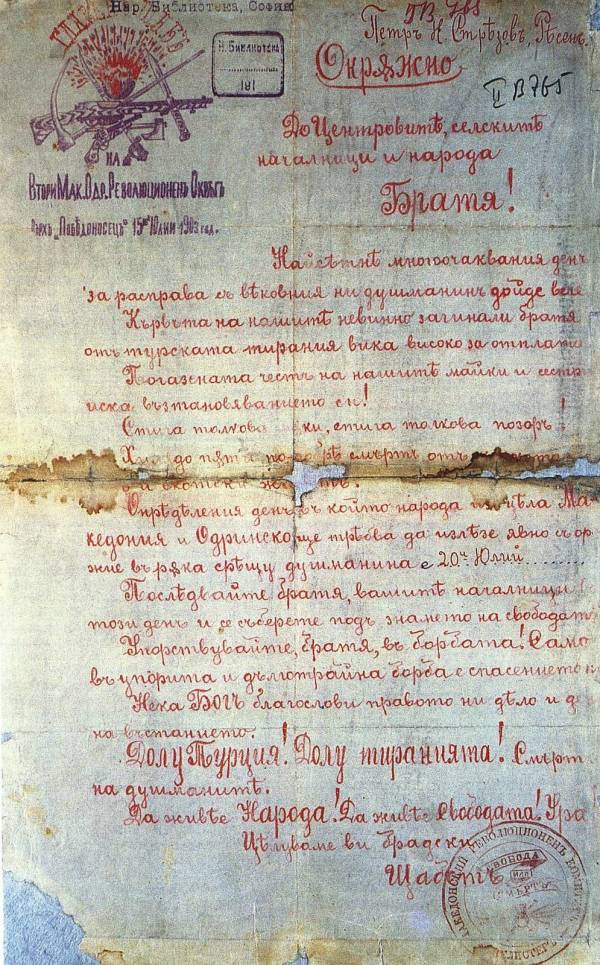 Нар. Библиотека, София
ГЛАВНИЯ ЩАБЪ
Н. Библиотека
181
Петръ Н. Стрѣзовъ, Рѣсенъ
Окрѫжно
II В 765
На
Втори Мак. Одр. Революционенъ Окрѫгъ
Върхъ „Повѣдоносецъ" 15й Юлий 1903 год.
До Центровитѣ, селскитѣ
началници и народа
Братя!
Найсѣтнѣ многоочаквания день
за расправа съ вѣковния ни душманинъ дойде вече
Кървьта на нашитѣ невинно загинали братя
отъ турската тирания вика високо за отплата
Погазената честь на нашитѣ майки и сестри
иска възтановяванието си!
Стига толкова мѫки, стига толкова позоръ!
до пѫти по смърть отъ
скотски
Опрѣдѣления день, въ който народа изъ цѣла Ма
кедония и Одринско ще трѣбва да излѣзе явно съ орѫ
жие въ рѫка срѣщу душманина е 20й Юлий.......
Послѣдвайте братя, вашитѣ началници въ
този день и се съберете подъ знамето на свободата
Упорствувайте, братя, въ борбата! Само
въ упорита и дълготрайна борба е спасението н
Нека Богъ благослови правото ни дѣло и де
на въстанието.
Долу Турция! Долу тиранията! Смърт
на душманитѣ.
Да живѣе Народа! Да живѣе Свободата! Ура
Цѣлуваме ви брадски
Щабътъ
МАКЕДОНСКИЙ РЕВОЛЮЦИОНЕНЪ КОМИТЕТЪ
СВОБОДА
ИЛИ
СМЪРТЬ